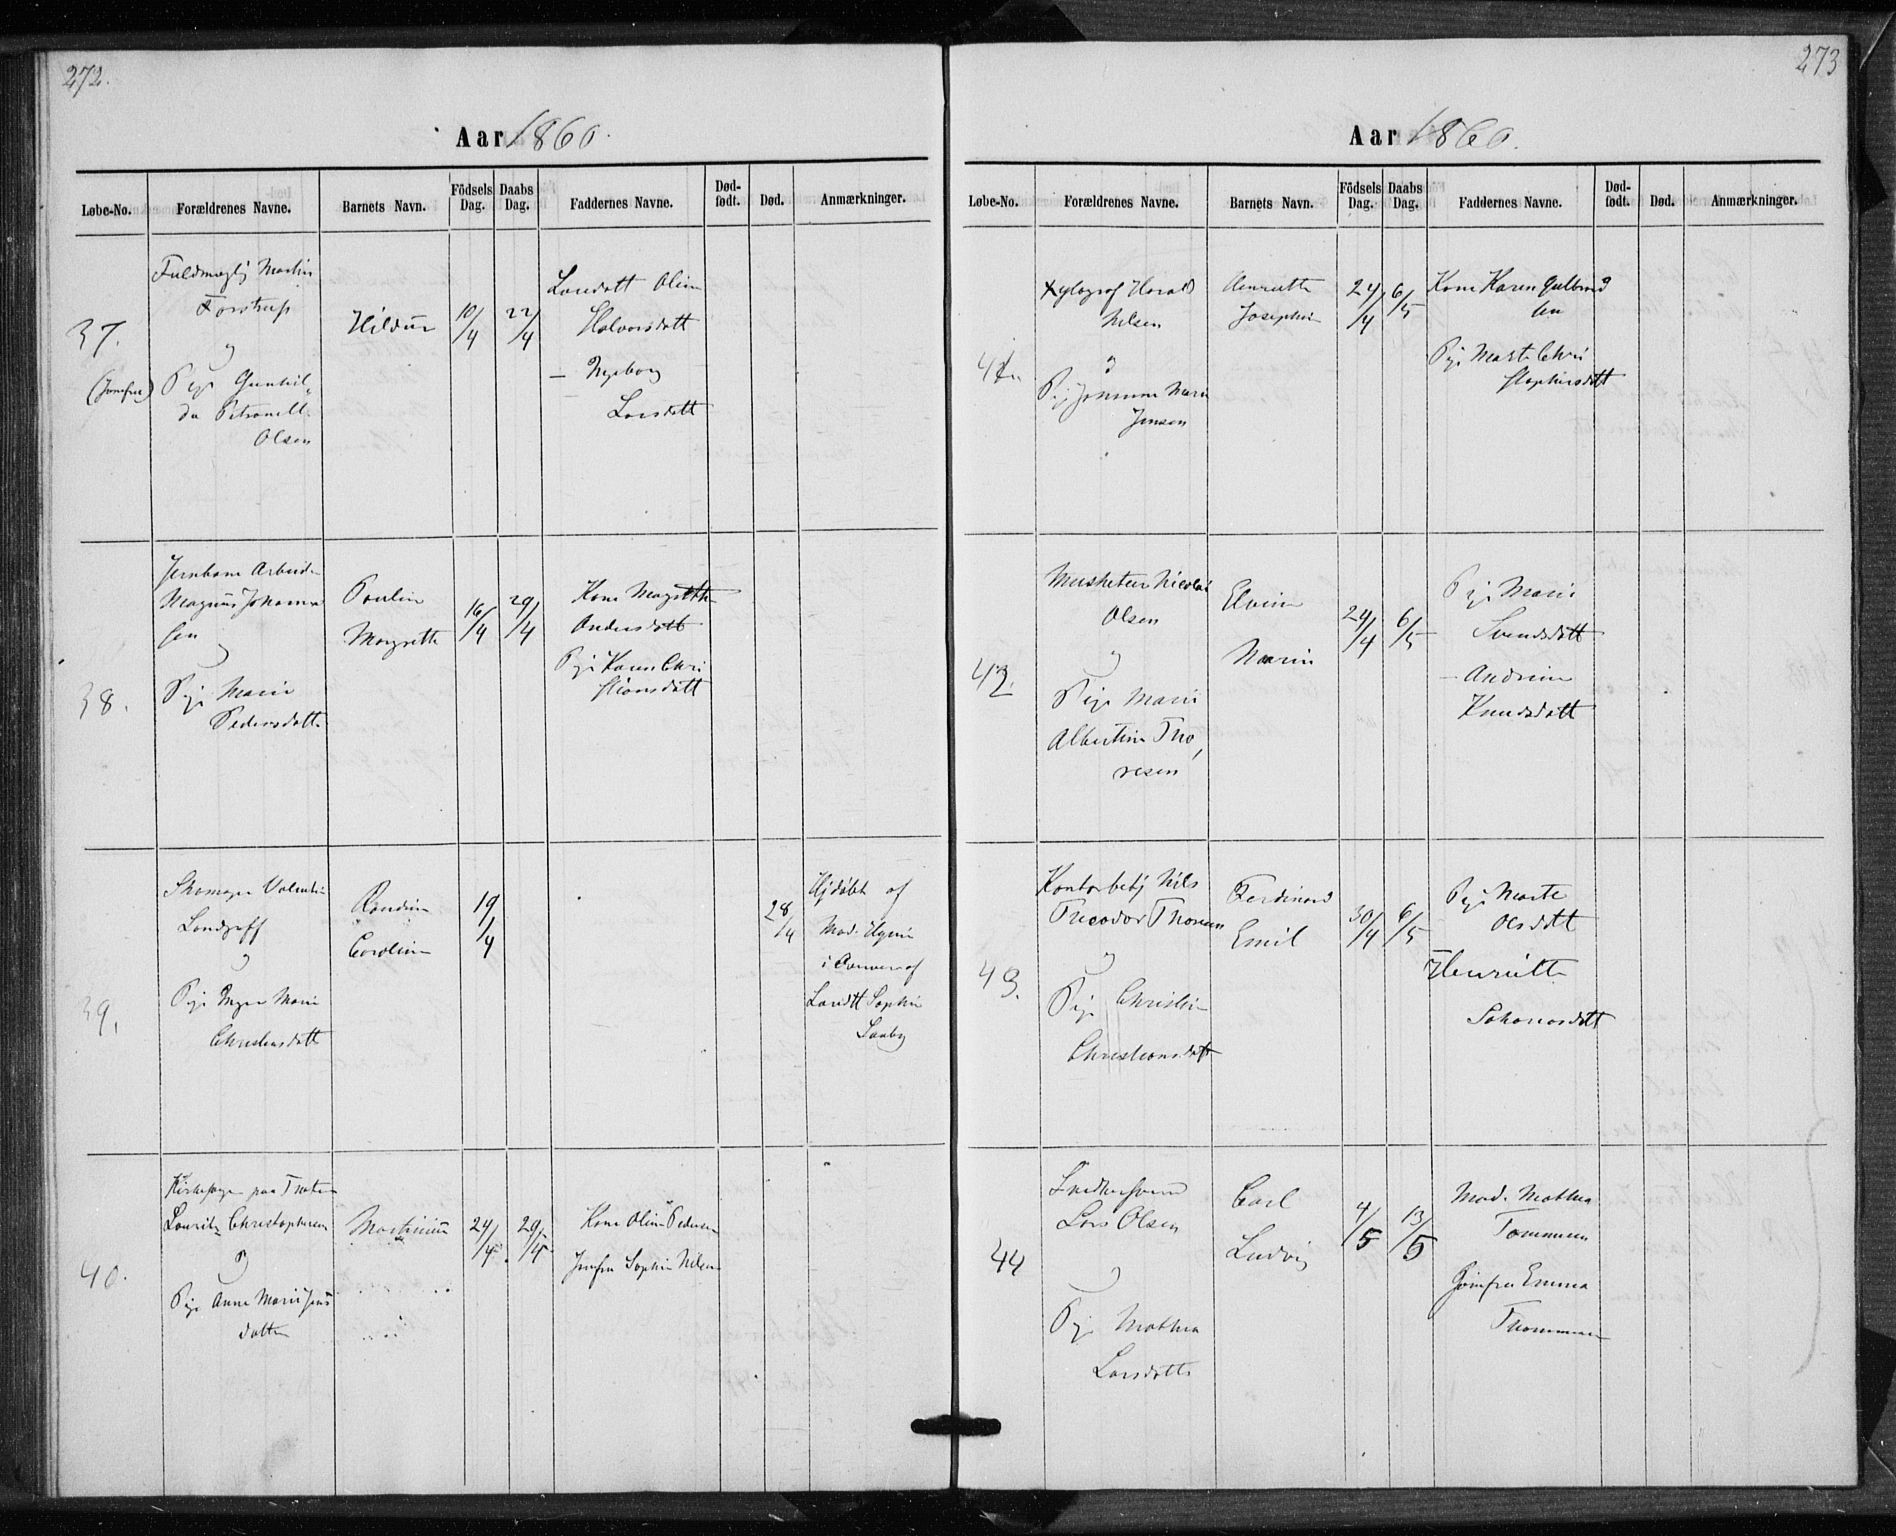 272.
Aar 1860.
Løbe-No. Forældrenes Navne. Barnets Navn. Födsels Dag. Daabs Dag. Faddernes Navne. Død-födt. Død. Anmærkninger.
37.
(Jomfru)
Fuldmægtig Martin
Forstrup
og
Pige Gunhil-
da Petronell.
Olsen
Hildur
10/4
22/4
Oline
Halvorsdatt
— Ingeborg
Larsdatt
38.
Jernbane Arbeid.
Magnus Johanne
sen
og
Pige Marie
Pedersdatt
Pouline
Margrethe
16/4
29/4
Kone Magrethe
Andersdatt
Pige Karen Chri
stiansdatt
39.
Skomager Valentin
Landgraff
og
Pige Inger Marie
Christensdatt
Randine
Caroline
19/4
28/4
Hjdøbt af
Mad.
i af
Sophie
40.
paa
Lauritz Christophersen
og
Pige Anne Marie Jens
datter
24/4
29/4
Kone Oline Pedersen
Jomfru Sophie Nilsen
273
Aar 1860.
Løbe-No. Forældrenes Navne. Barnets Navn. Födsels Dag. Daabs Dag. Faddernes Navne. Död-födt. Død. Anmærkninger.
41.
Xylograf Harald
Nilsen
og
Pige Marie
Jensen
Henriette
Josephine
24/4
6/5
Kone Karen Gulbrand
sen
Pige Marte Chri
stophersdatt
42.
Musketeer Nicolai
Olsen
og
Pige Marie
Albertine Tho
resen
Elvine
Marie
29/4
6/5
Pige Marie
Svendsdatt
— Andrine
Knudsdatt
43.
Kontorbetj Nils
Theodor Thoresen
og
Pige Christine
Christiansdatt
Ferdinand
Emil
30/4
6/5
Pige Marte
Olsdatt
Henriette
Johansdatt
44
Snedkersvend
Lars Olsen
og
Pige Mathea
Larsdatt
Carl
Ludvig
4/5
13/5
Mad. Mathea
Tommesen
Jomfru Emma
Thommesen